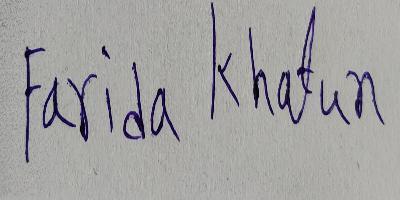 Farida Khatun